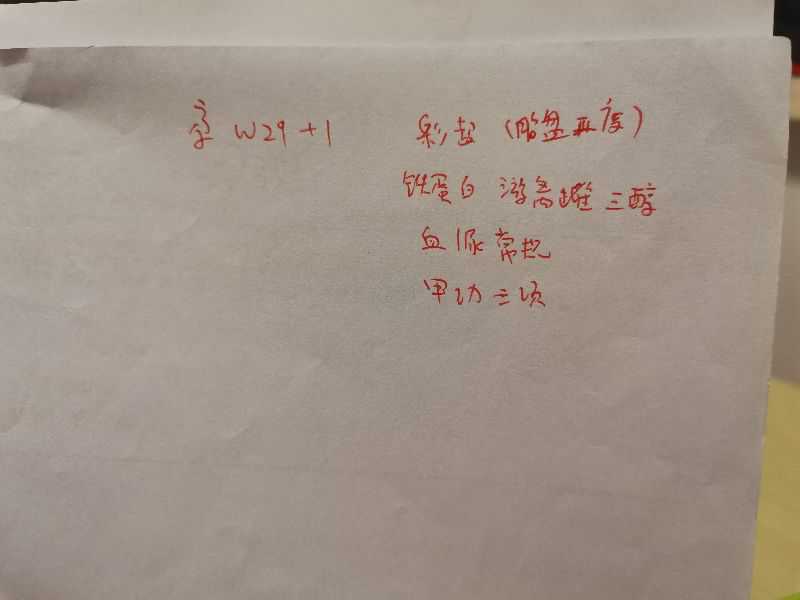 孕 W29+1 彩超 (胎盘Ⅲ度)
铁蛋白 游离雌三醇
血尿常规
甲功三项